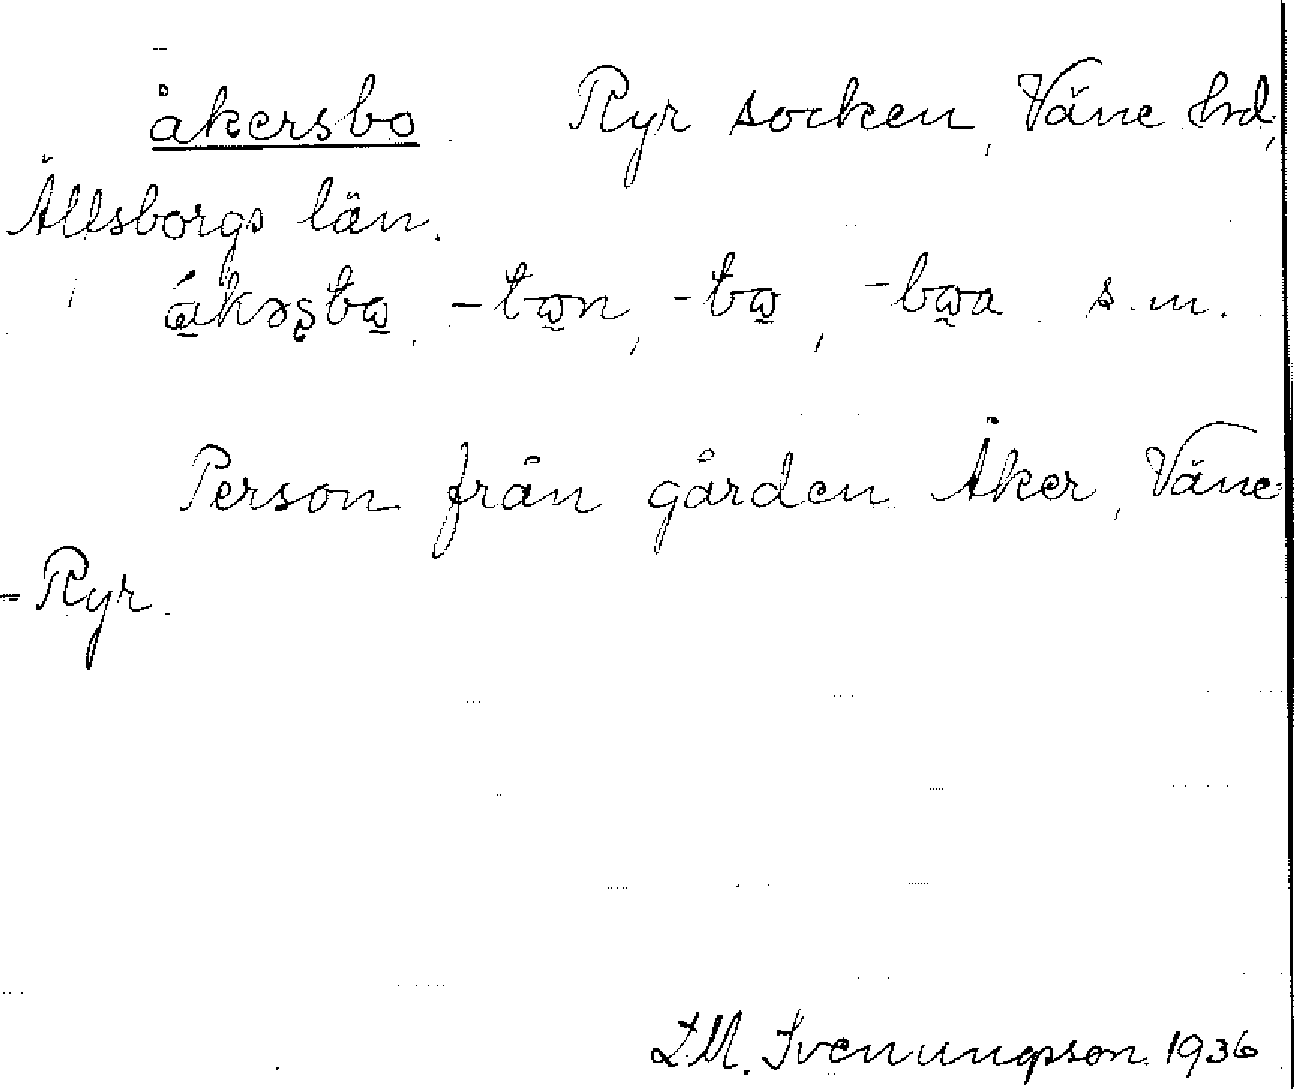 åkersbo Ryr socken, Väne hd,
Älvsborgs län.
s.m.
Person från gården Åker, Väne-
-Ryr.
Svenungsson 1936